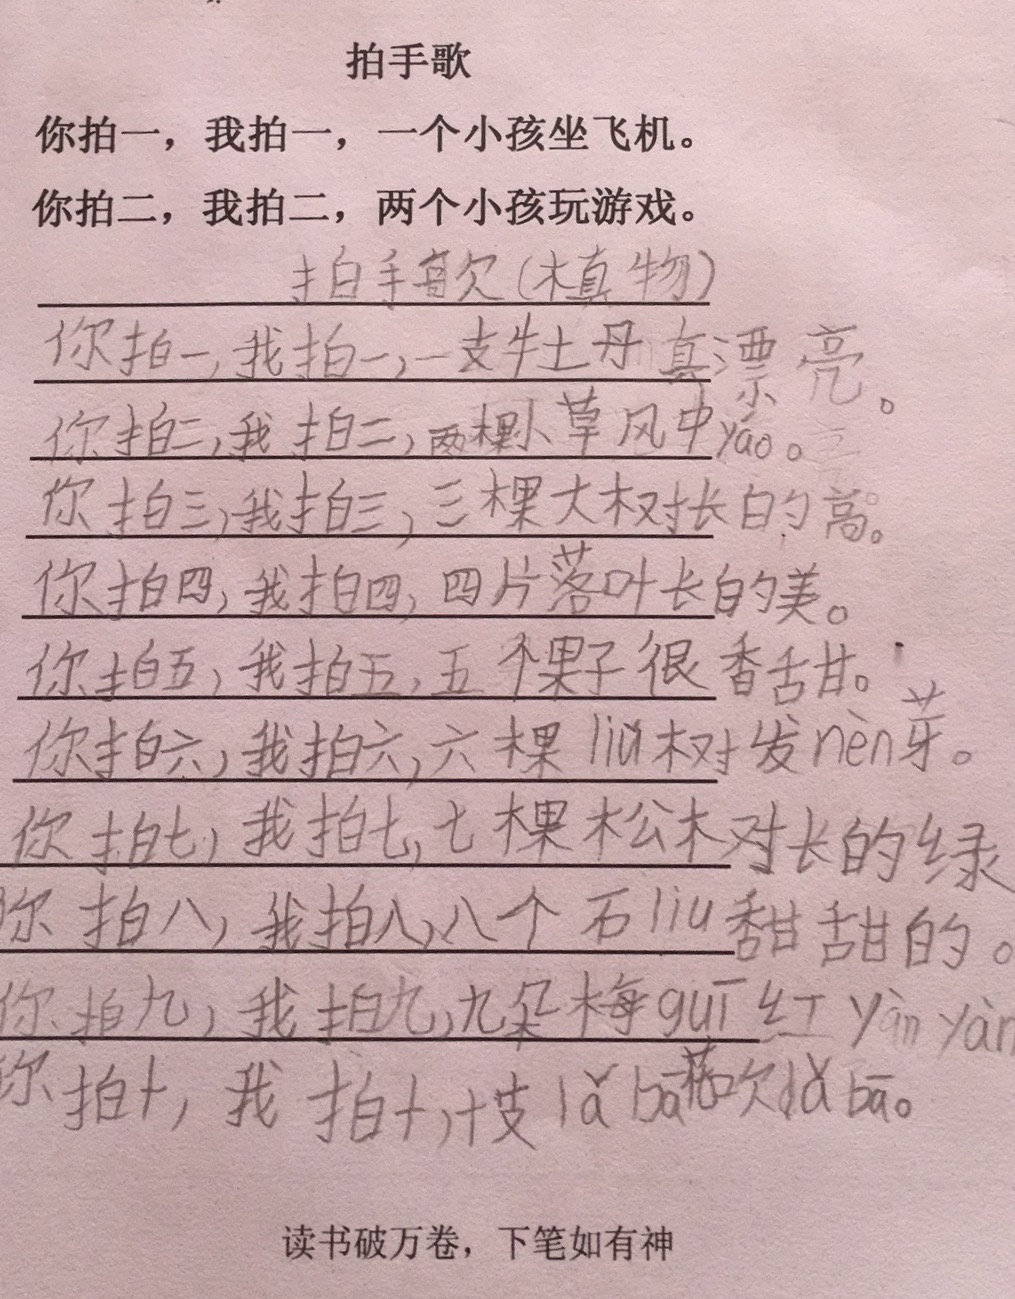 拍手歌
你拍一，我拍一，一个小孩坐飞机。
你拍二，我拍二，两个小孩玩游戏。
拍手歌（植物）
你拍一，我拍一，一支牛土丹真漂亮。
你拍二，我拍二，两棵小草风中yáo。
你拍三，我拍三，三棵大树长的高。
你拍四，我拍四，四片落叶长的美。
你拍五，我拍五，五个果子很香舌甘。
你拍六，我拍六，六棵liǔ树发nèn芽。
你拍七，我拍七，七棵松树长的绿
你拍八，我拍八，八个石liu甜甜的。
你拍九，我拍九，九朵梅guī红yàn yàn
你拍十，我拍十，十支lǎ bā花吹lǎ bā。
读书破万卷，下笔如有神